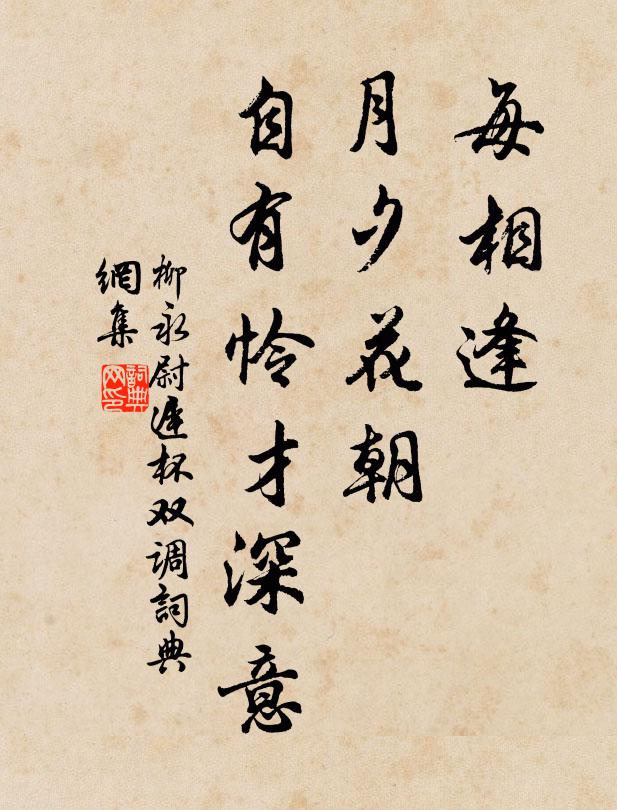 每相逢
月夕花朝
自有怜才深意
柳永尉遲杯双调詞典
網集
詞典
网印